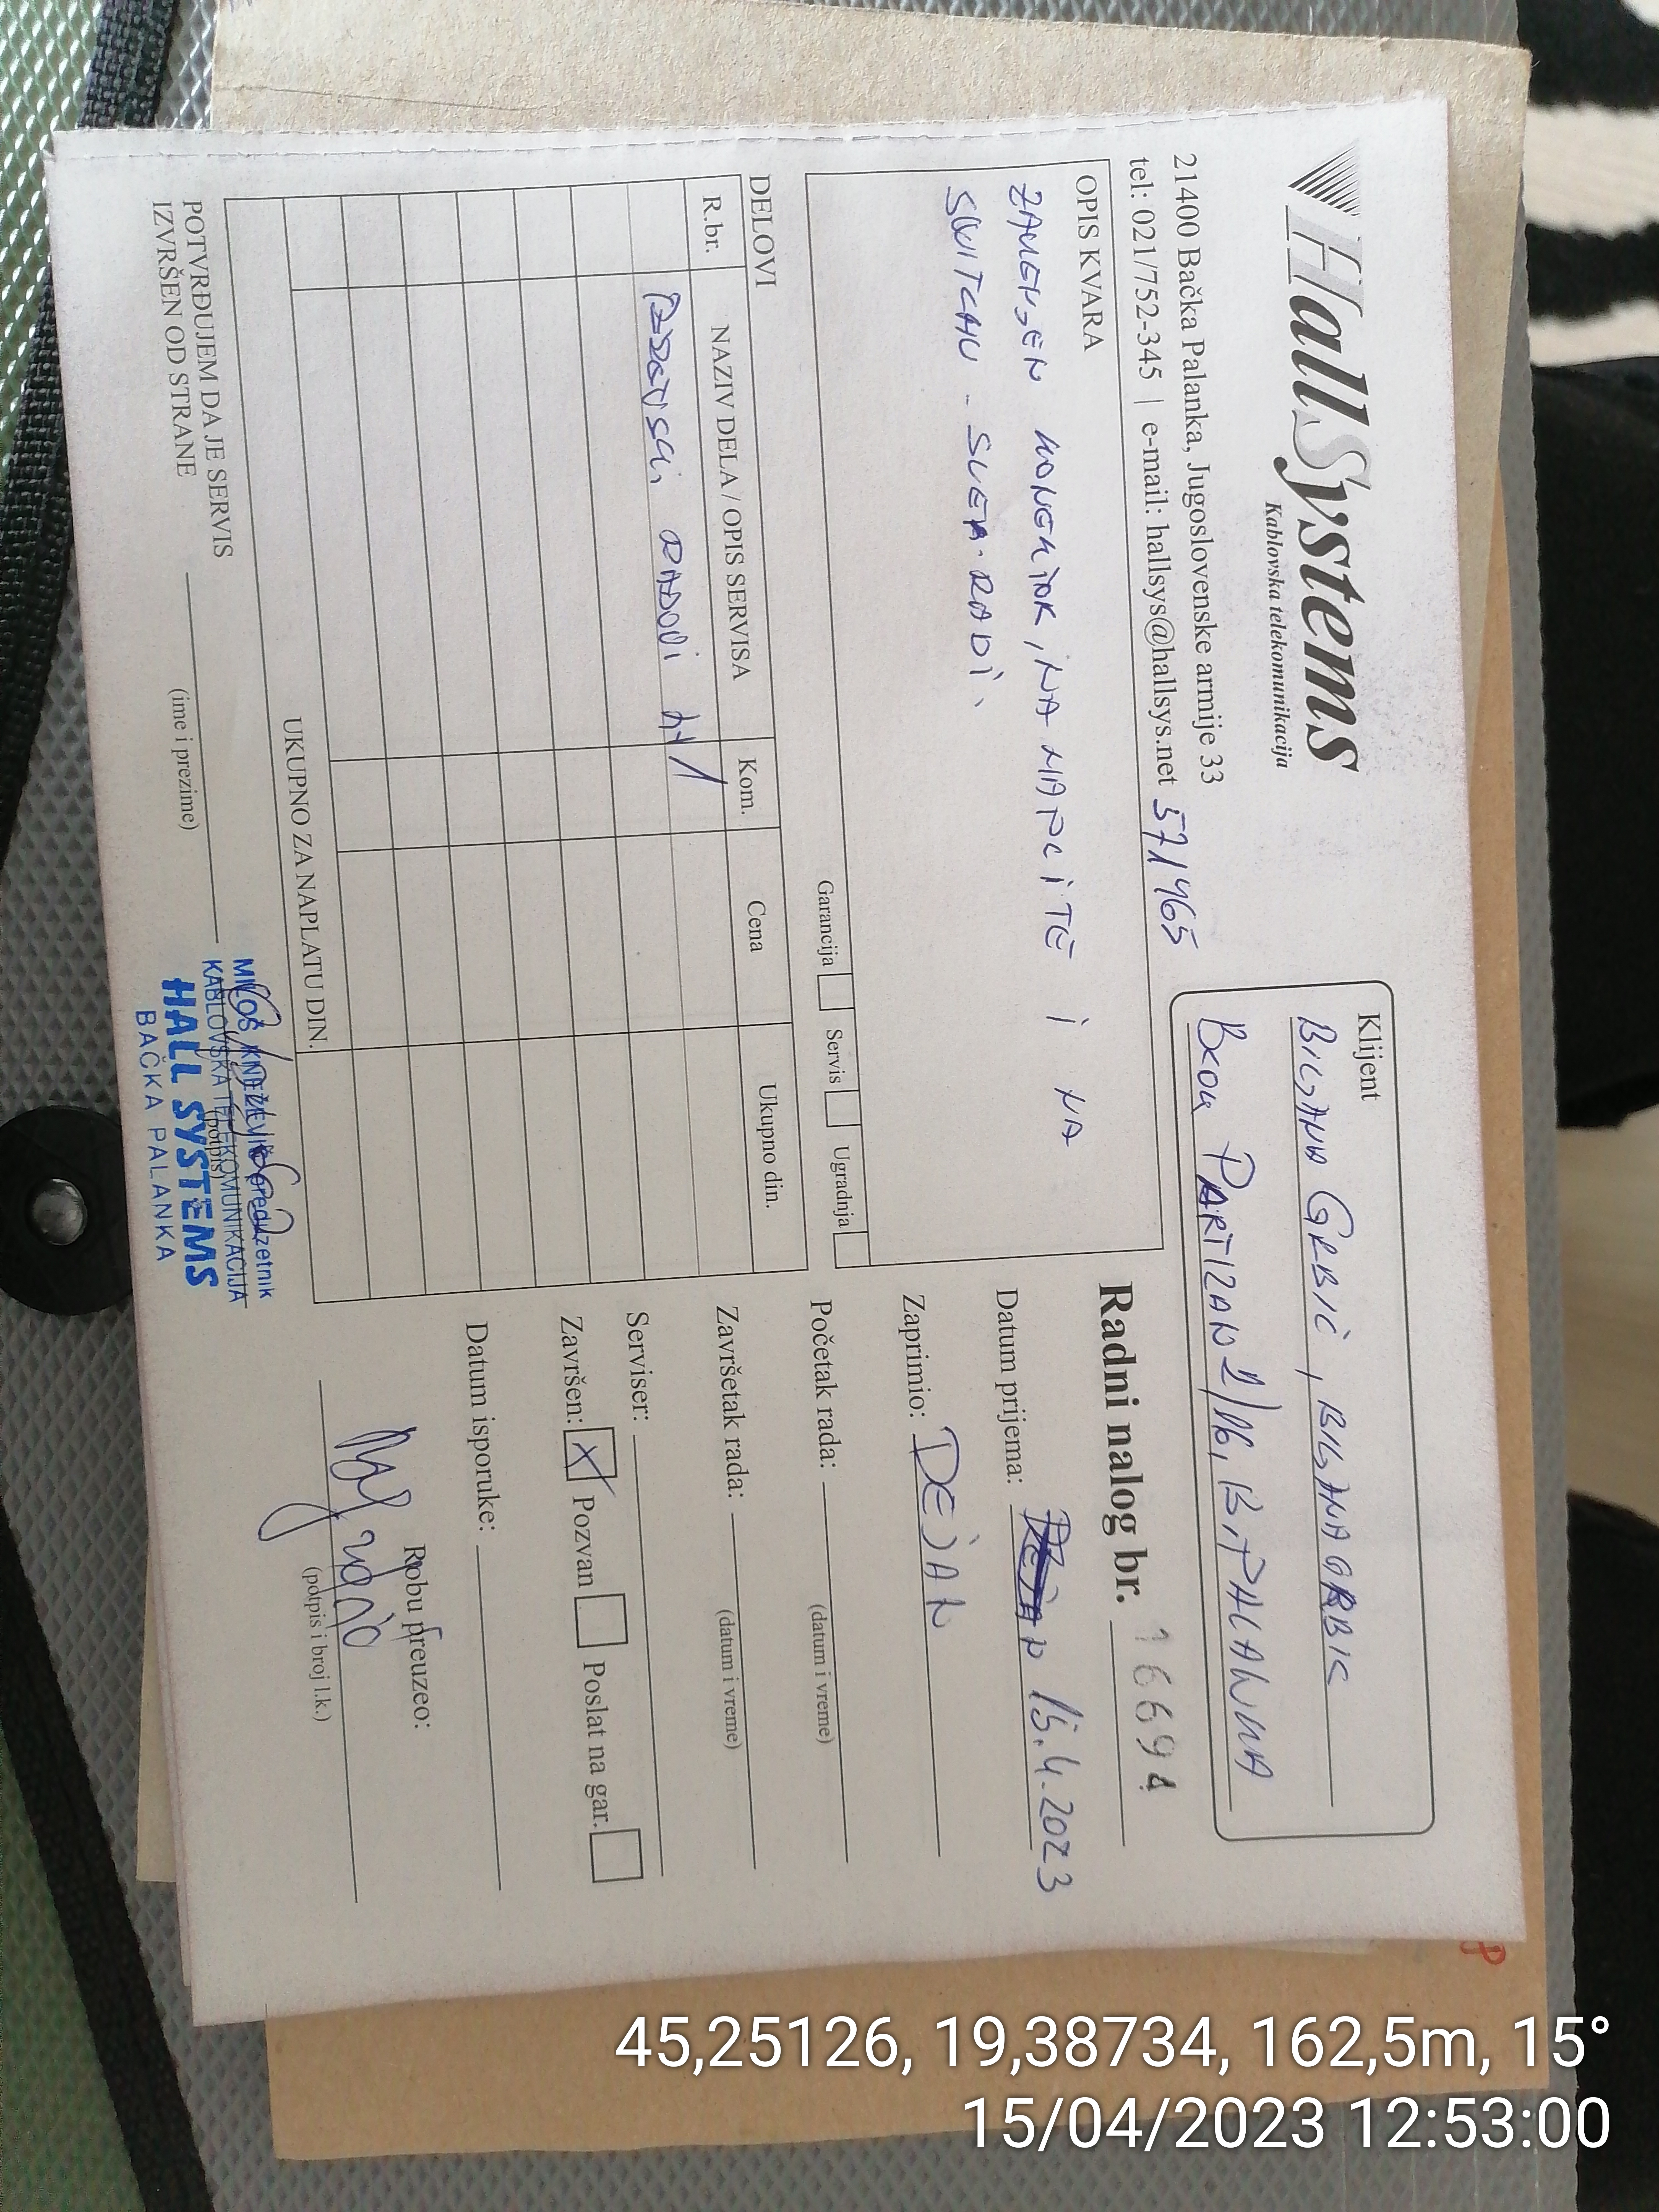 HallSystems
Kablovska telekomunikacija
21400 Bačka Palanka, Jugoslovenske armije 33
tel: 021/752-345 | e-mail: hallsys@hallsys.net 571465
Klijent
BILJANA GRBIĆ, BILJANAGRBIC
PARTIZAN 2/16, B. PALANKA
OPIS KVARA
ZAMENJEN KONEKTOR, NA MAPCITE I NA
SWITCHU - SVE RADI.
Garancija Servis Ugradnja
DELOVI
R.br. NAZIV DELA / OPIS SERVISA Kom. Cena Ukupno din.
RJ 1
UKUPNO ZA NAPLATU DIN.
POTVRĐUJEM DA JE SERVIS
IZVRŠEN OD STRANE
(ime i prezime)
(potpis)
MILOŠ KNEŽEVIĆ preduzetnik
KABLOVSKA TELEKOMUNIKACIJA
HALL SYSTEMS
BAČKA PALANKA
Radni nalog br. 16694
Datum prijema: 15.4.2023
Zaprimio: DEJAN
Početak rada:
(datum i vreme)
Završetak rada:
(datum i vreme)
Serviser:
Završen: X Pozvan Poslat na gar.
Datum isporuke:
Robu preuzeo:
(potpis i broj l.k.)
45,25126, 19,38734, 162,5m, 15°
15/04/2023 12:53:00